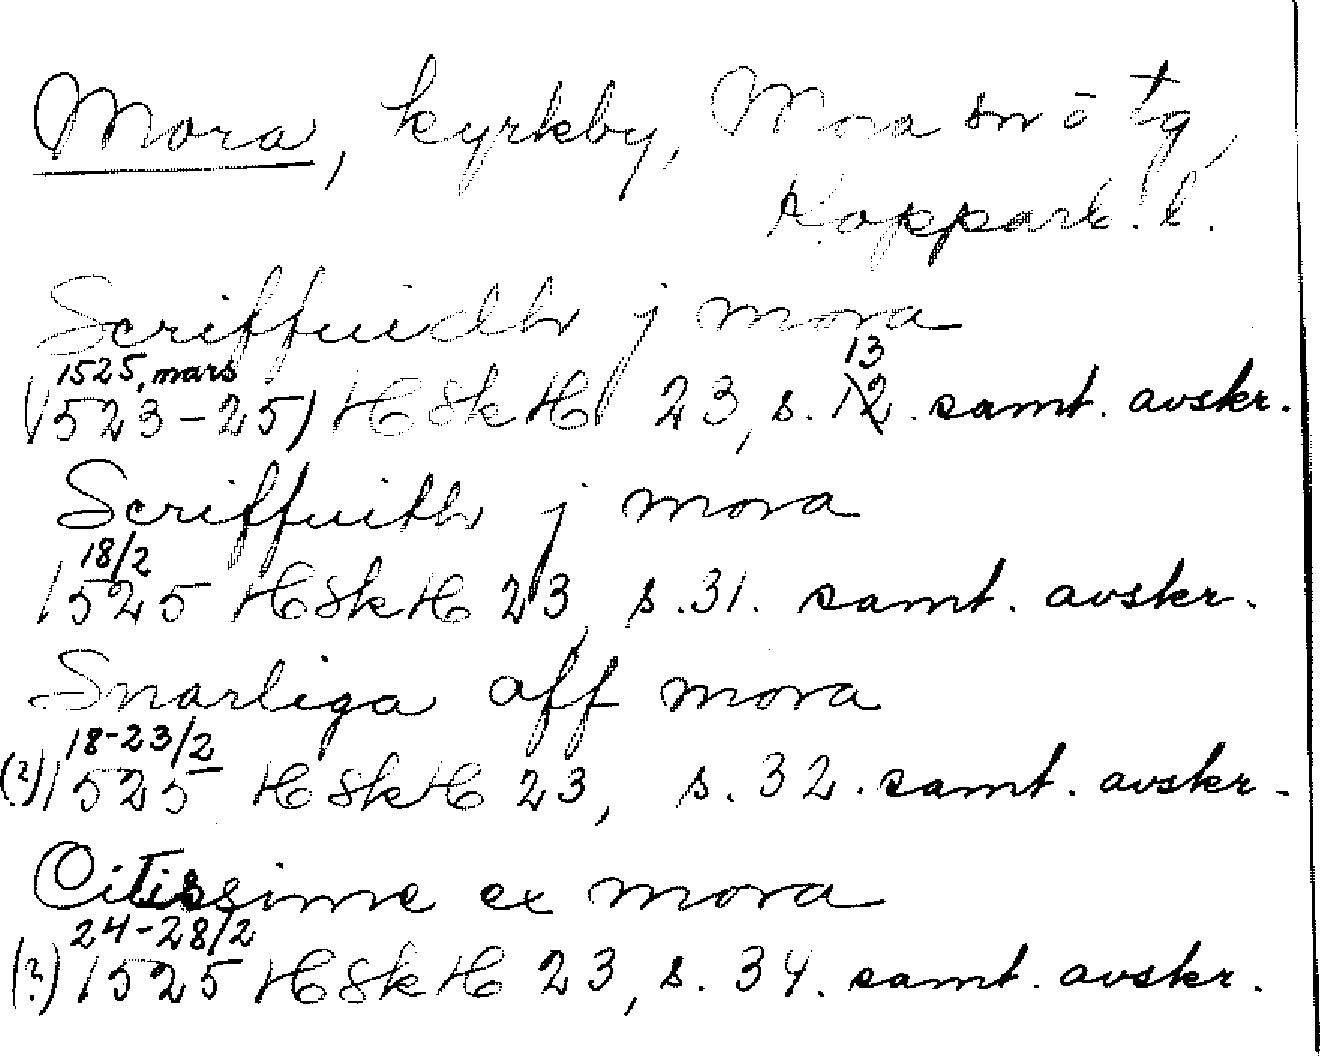 Mora, kyrkby, Mora sn ö tg,
Kopparb. l.
Scriffuidh j mora
1525, mars 13
(1523-25) HSkH 23, s. 12. samt. avskr.
Scriffuith j mora
18/2
1525 HSkH 23, s. 31. samt. avskr.
Snarliga aff mora
18-23/2
(?) 1525 HSkH 23, s. 32. samt. avskr.
Citissime ex mora
24-28/2
(?) 1525 HSkH 23, s. 34. samt. avskr.